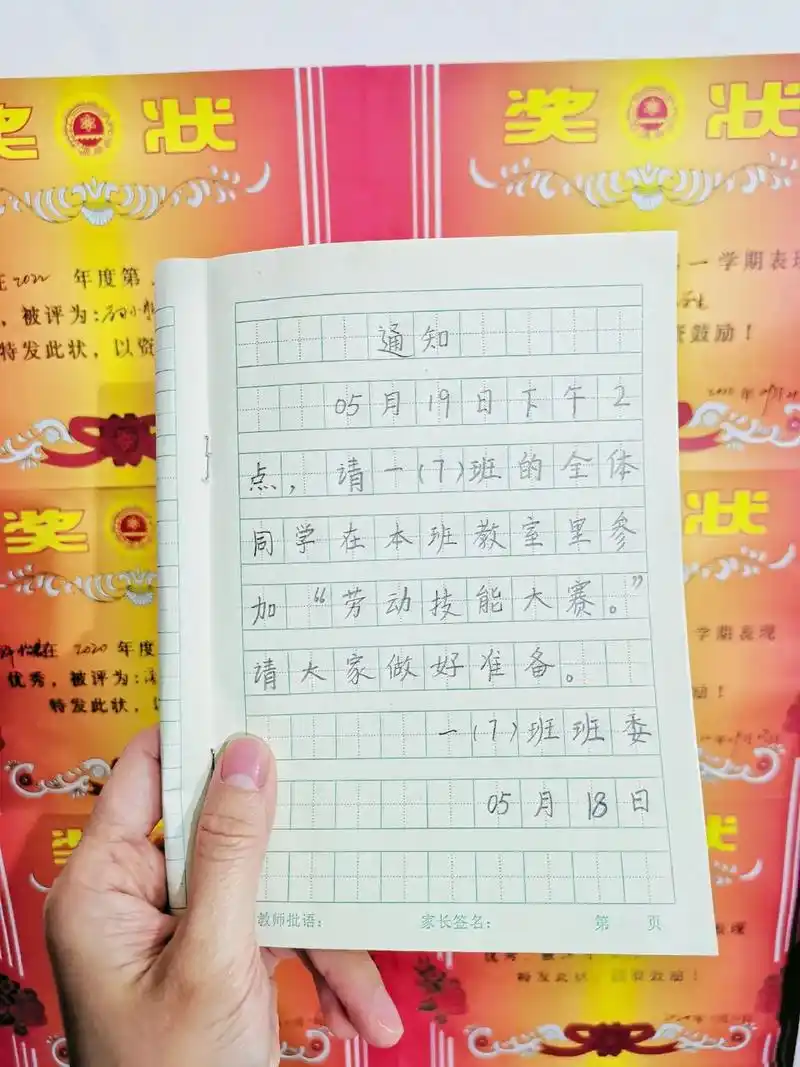 奖 状
奖 状
在2022 年度第
学期表现
, 被评为:
特发此状, 以资
鼓励!
通知
05月19日下午2
点，请一(7)班的全体
同学在本班教室里参
加“劳动技能大赛。”
请大家做好准备。
一(7)班班委
05月18日
教师批语: 家长签名: 第 页
奖 状
状
在 2020 年度
学期表现
优秀, 被评为:
励!
特发此状,
奖
状
优秀,
表现
特发此状,